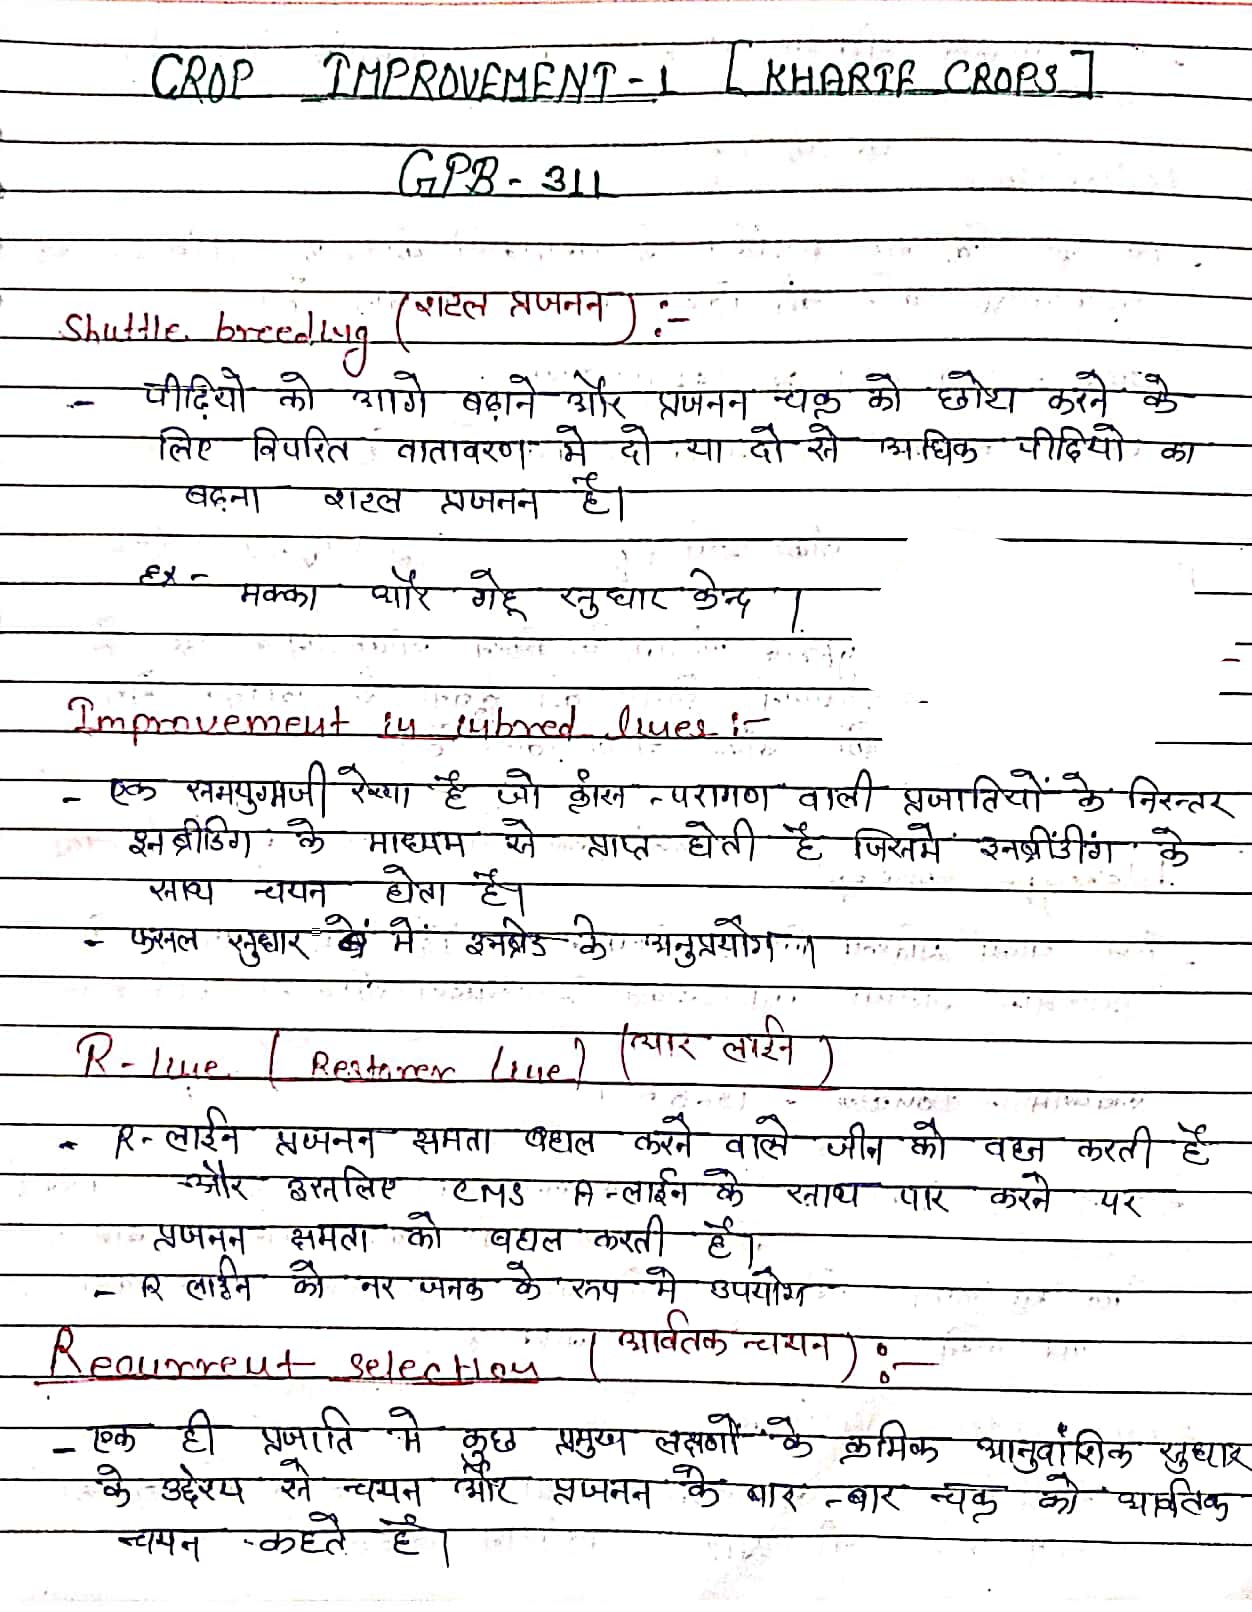 CROP IMPROVEMENT-1 [KHARIF CROPS]
GPB-311
Shuttle breeding (शटल प्रजनन) :-
- पीढ़ियो को आगे बढ़ाने और प्रजनन चक्र को छोटा करने के
लिए विपरित वातावरण मे दो या दो से अधिक पीढियो का
बढ़ना शटल प्रजनन है।
Ex- मक्का और गेहू सुधार केन्द्र ।
Improvement in inbred lines :-
- एक समयुग्मजी रेखा है जो क्रॉस-परागण वाली प्रजातियों के निरन्तर
इनब्रीडिंग के माध्यम से प्राप्त होती है जिसमें इनब्रींडींग के
साथ चयन होता है।
- फसल सुधार में इनब्रेड के अनुप्रयोग ।
R-line (Restorer line) (आर लाईन)
- R-लाईन प्रजनन क्षमता बहाल करने वाले जीन को वहन करती है
और इसलिए CMS A-लाईन के साथ पार करने पर
प्रजनन क्षमता को बहाल करती है।
- R लाईन को नर जनक के रूप मे उपयोग
Recurrent selection (आर्वतक चयन) :-
- एक ही प्रजाति मे कुछ प्रमुख लक्षणों के क्रमिक आनुवांशिक सुधार
के उद्देश्य से चयन और प्रजनन के बार-बार चक्र को आर्वतक
चयन कहते है।